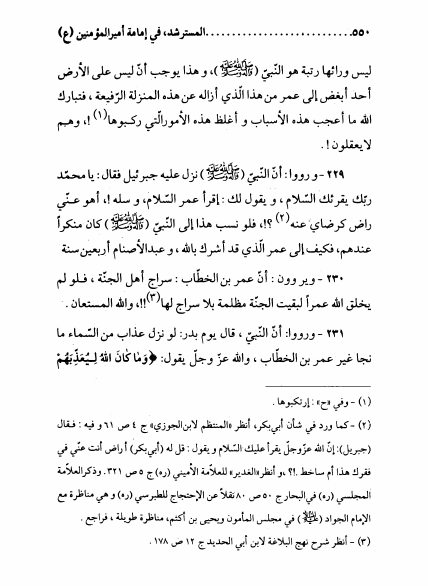 ٥٥٠............................المسترشد، في إمامة أميرالمؤمنين (ع)
ليس ورائها رتبة هو النّبيّ (ﷺ)، و هذا يوجب أنّ ليس على الأرض
أحد أبغض إلى عمر من هذا الّذي أزاله عن هذه المنزلة الرّفيعة ، فتبارك
الله ما أعجب هذه الأسباب و أغلظ هذه الأمورالّتي ركبوها(١) !، وهـم
لايعقلون !.
٢٢٩ - ورووا: أنّ النّبيّ (ﷺ) نزل عليه جبرئيل فقال: يا محمّد
ربّك يقرئك السّلام ، و يقول لك : إقرأ عمر السّلام، و سله !، أهو عنّي
راض كرضاي عنه(٢) ؟!، فلو نسب هذا إلى النّبيّ (ﷺ) كان منكراً
عندهم، فكيف إلى عمر الّذي قد أشرك بالله ، و عبدالأصنام أربعين سنة
٢٣٠ - ويروون : أنّ عمر بن الخطّاب : سراج أهل الجنّة ، فـلو لم
يخلق الله عمراً لبقيت الجنّة مظلمة بلا سراج لها(٣)!!، والله المستعان .
٢٣١ - ورووا: أنّ النّبيّ ، قال يوم بدر: لو نزل عذاب من السّماء ما
نجا غير عمر بن الخطّاب ، والله عزّ وجلّ يقول: ﴿وَمٰا كٰانَ اللهُ لِـيُعَذِّبَهُمْ
(١) - وفي «ح» : إرتكبوها .
(٢) - كما ورد في شأن أبي‌بكر، أنظر «المنتظم لابن‌الجوزي» ج ٤ ص ٦١ و فيه : فـقال
(جبريل): إنّ الله عزّوجلّ يقرأ عليك السّلام و يقول : قل له (أبي‌بكر) أراض أنت عنّي في
فقرك هذا أم ساخط .!؟ ،و أنظر«الغدير» للعلاّمة الأميني (ره) ج ٥ ص ٣٢١. وذكرالعلاّمة
المجلسي (ره) في‌البحار ج ٥٠ ص ٨٠ نقلاً عن الإحتجاج للطبرسي (ره) و هي مناظرة مع
الإمام الجواد (عليه السلام) في مجلس المأمون ويحيى بن أكثم، مناظرة طويلة ، فراجع .
(٣) - أنظر شرح نهج البلاغة لابن أبي الحديد ج ١٢ ص ١٧٨ .